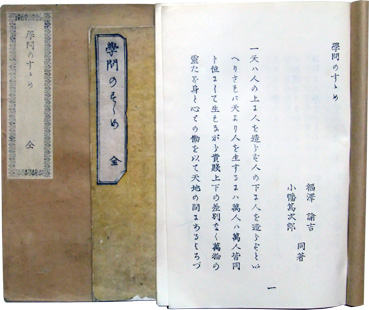 學問のすゝめ
福澤諭吉
小幡篤次郎
同著
一天ハ人の上に人を造らず人の下に人を造らずと以
へりされバ天より人を生ずるにハ萬人ハ萬人皆同
じ位にして生れながら貴賤上下の差別なく萬物の
靈たる身と心との働を以て天地の間にあるよろづ
一
學問のすゝめ
全
學問のすゝめ
全